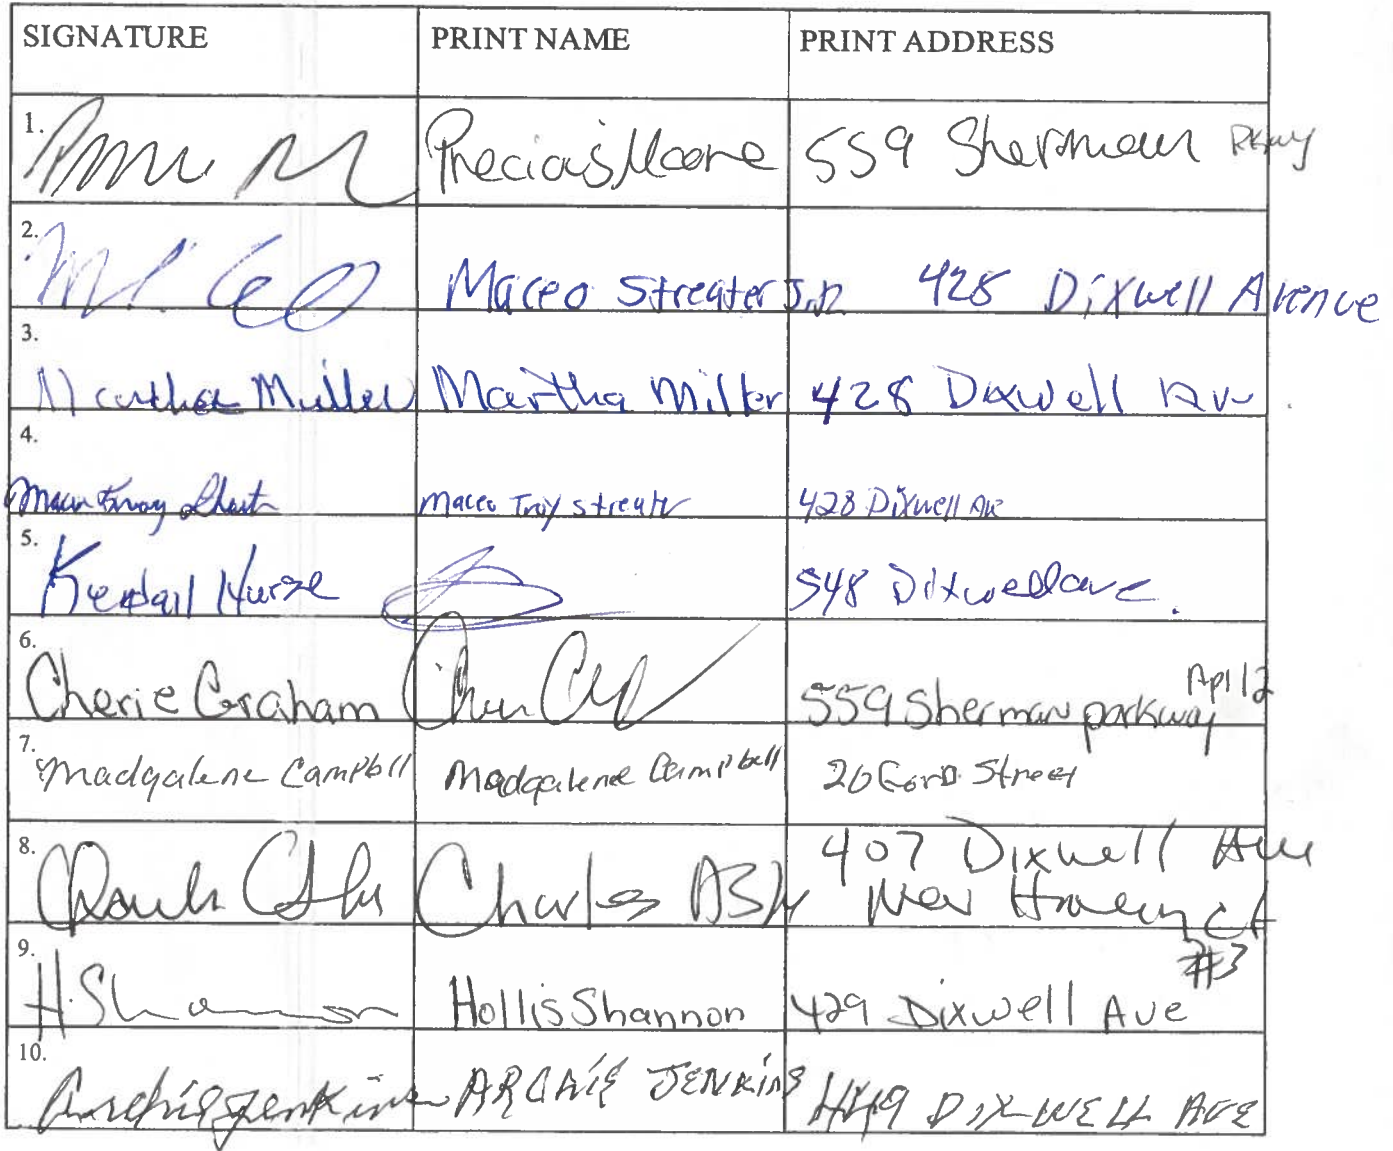 SIGNATURE PRINT NAME PRINT ADDRESS
1. Precious Moore 559 Sherman Pkwy
2. Maceo Streater Jr. 428 Dixwell Avenue
3. Martha Miller Martha Miller 428 Dixwell Av
4. Maceo Troy Streater 428 Dixwell Ave
5. Kendall Nurse 548 Dixwell ave.
6. Cherie Graham 559 Sherman parkway Apt 12
7. Madgalene Campbell Madgalene Campbell 20 Ford Street
8. Charles Ash 407 Dixwell Ave
New Haven, Ct
9. H. Shannon Hollis Shannon 429 Dixwell Ave #3
10. Archie Jenkins ARCHIE JENKINS 449 DIXWELL AVE